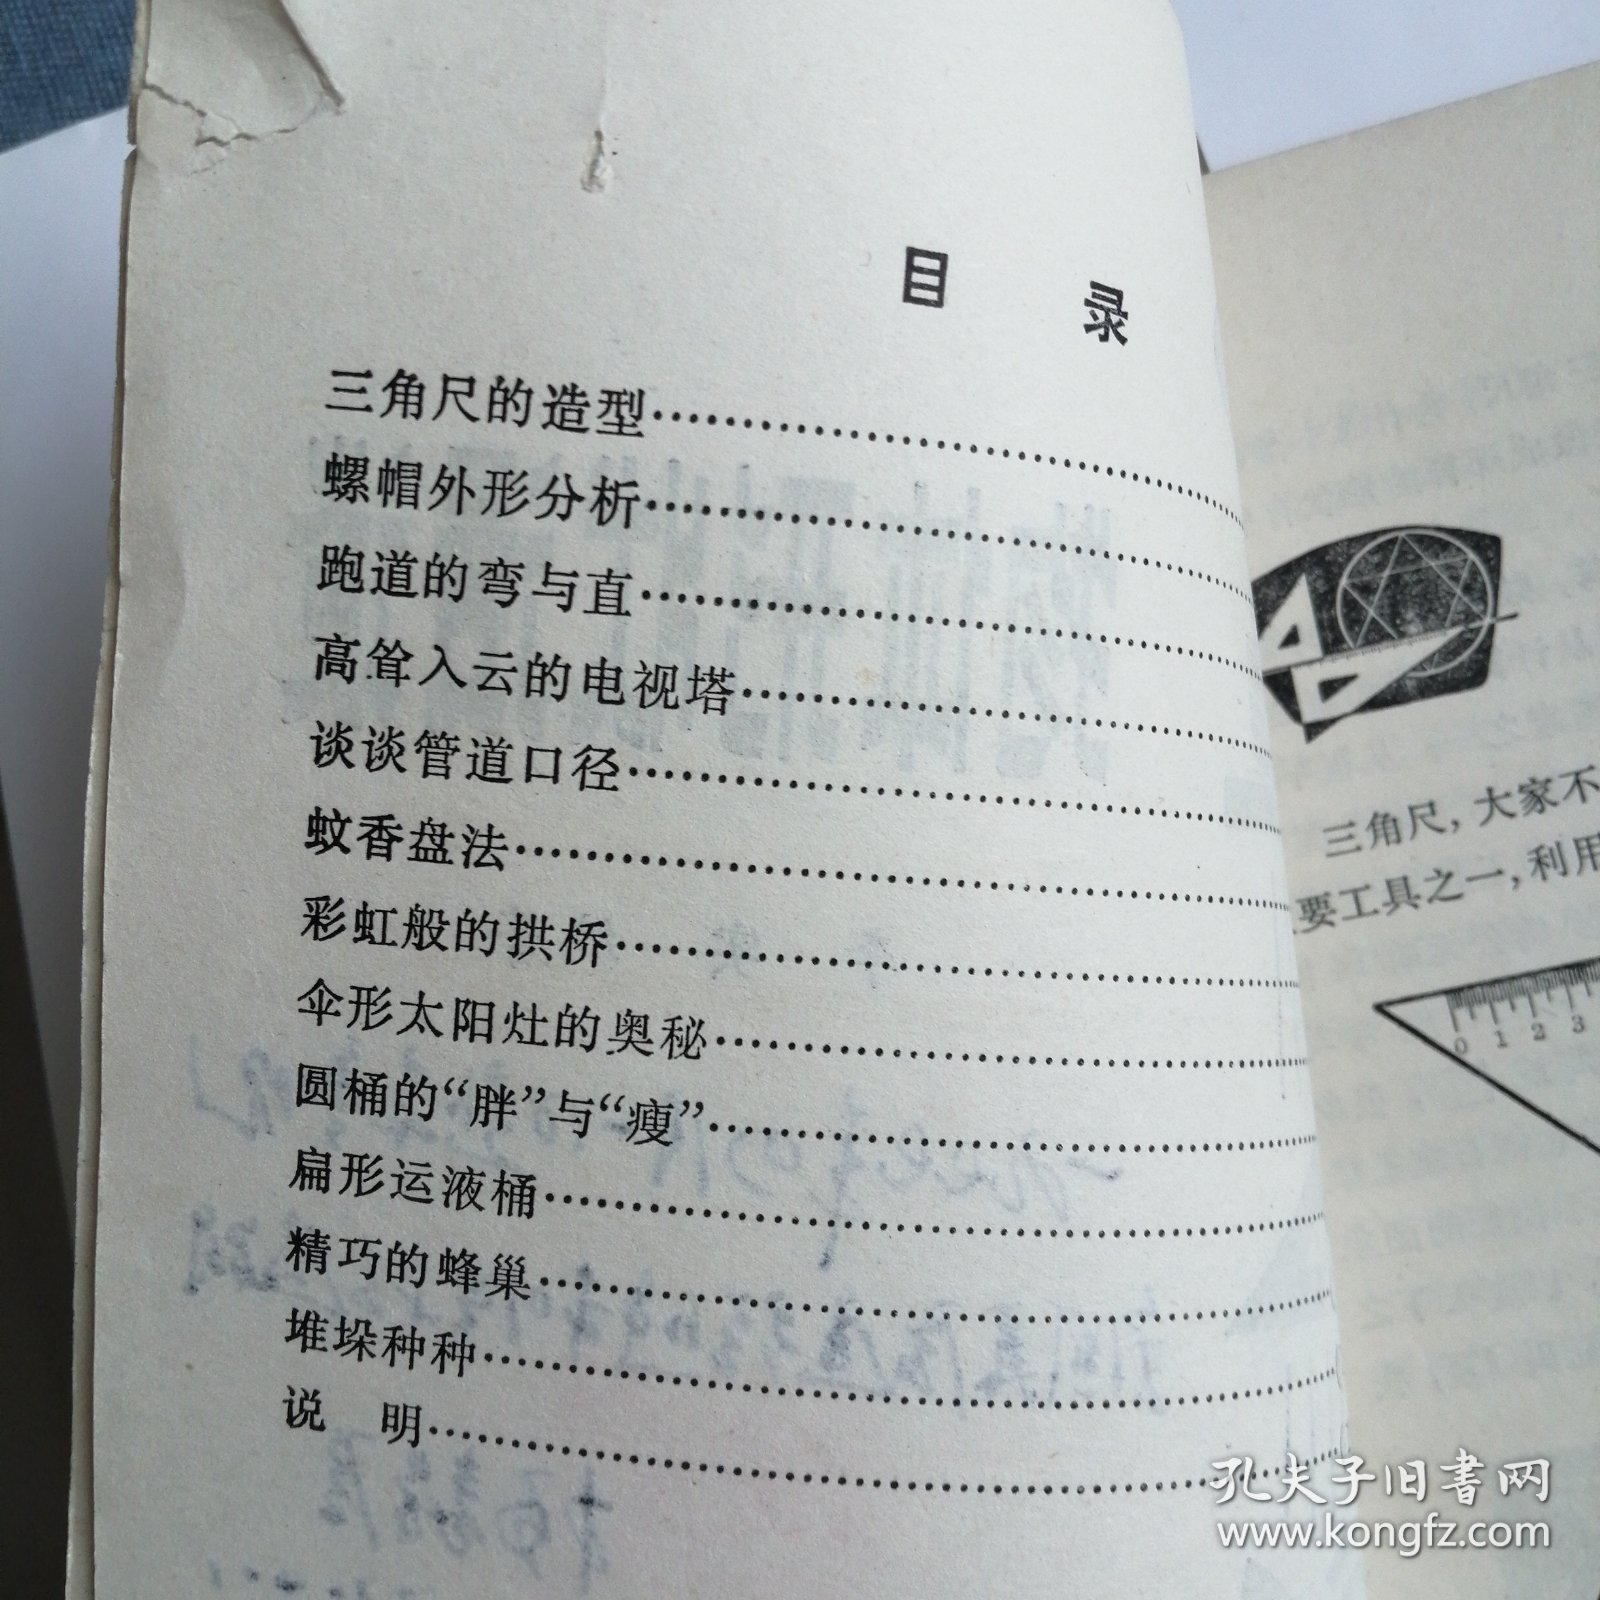 目 录
三角尺的造型
螺帽外形分析
跑道的弯与直
高耸入云的电视塔
谈谈管道口径
蚊香盘法
彩虹般的拱桥
伞形太阳灶的奥秘
圆桶的“胖”与“瘦”
扁形运液桶
精巧的蜂巢
堆垛种种
说 明
三角尺，大家不
要工具之一，利用
0 1 2 3
孔夫子旧书网
www.kongfz.com